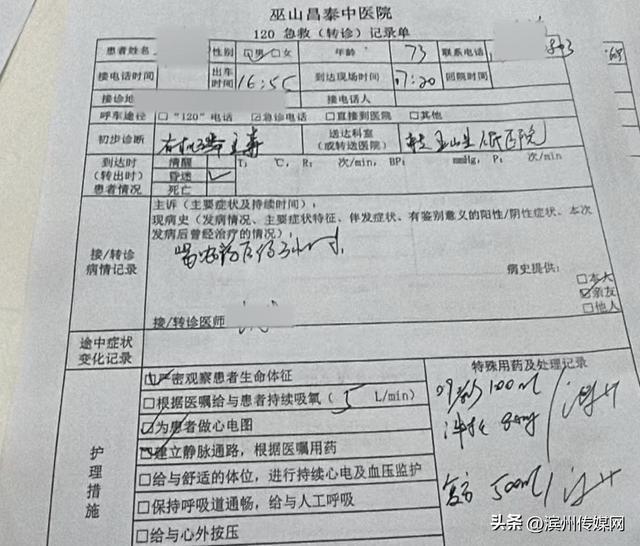 巫山昌泰中医院
120 急救（转诊）记录单
患者姓名 性别 ☑男□女 年龄 73 联系电话
接电话时间 出车时间 16:55 到达现场时间 17:20 回院时间
接诊地 接电话人
呼车途径 □"120"电话 ☑急诊电话 □直接到医院 □其他
初步诊断 有机磷中毒 送达科室（或转送医院） 转巫山县人民医院
到达时（转出时）患者情况 清醒 T: ℃, R: 次/min, BP: mmHg, P: 次/min
昏迷 ✓
死亡
接/转诊病情记录
主诉（主要症状及持续时间）:
现病史（发病情况、主要症状特征、伴发症状、有鉴别意义的阳性/阴性症状、本次
发病后曾经治疗的情况）:
病史提供: □本人
☑亲友
□他人
接/转诊医师
途中症状变化记录
护理措施
☑严密观察患者生命体征
□根据医嘱给与患者持续吸氧（5 L/min）
☑为患者做心电图
☑建立静脉通路，根据医嘱用药
□给与舒适的体位，进行持续心电及血压监护
□保持呼吸道通畅，给与人工呼吸
□给与心外按压
特殊用药及处理记录
100ml
500ml
头条 @滨州传媒网